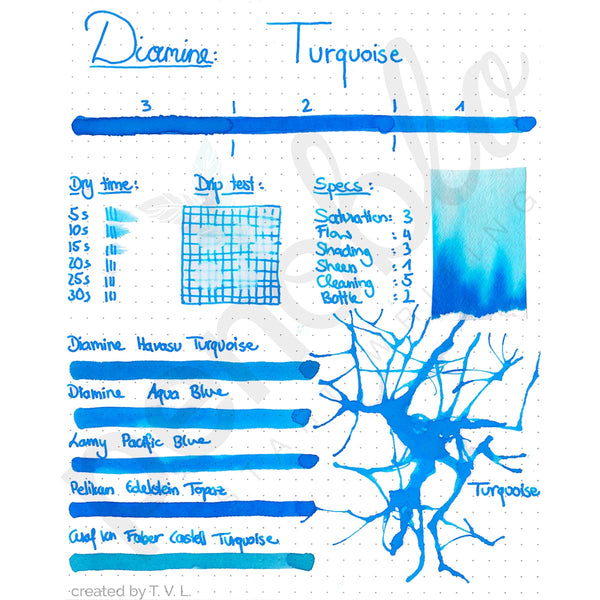 Diamine: Turquoise
3 | 2 | 1
Dry time:
5s
10s
15s
20s
25s
30s
Drip test:
Specs:
Saturation: 3
Flow : 4
Shading : 3
Sheen : 1
Cleaning : 5
Bottle : 2
Diamine Havasu Turquoise
Diamine Aqua Blue
Lamy Pacific Blue
Pelikan Edelstein Topaz
Graf von Faber Castell Turquoise
Turquoise
penoblo
created by T. V. L.